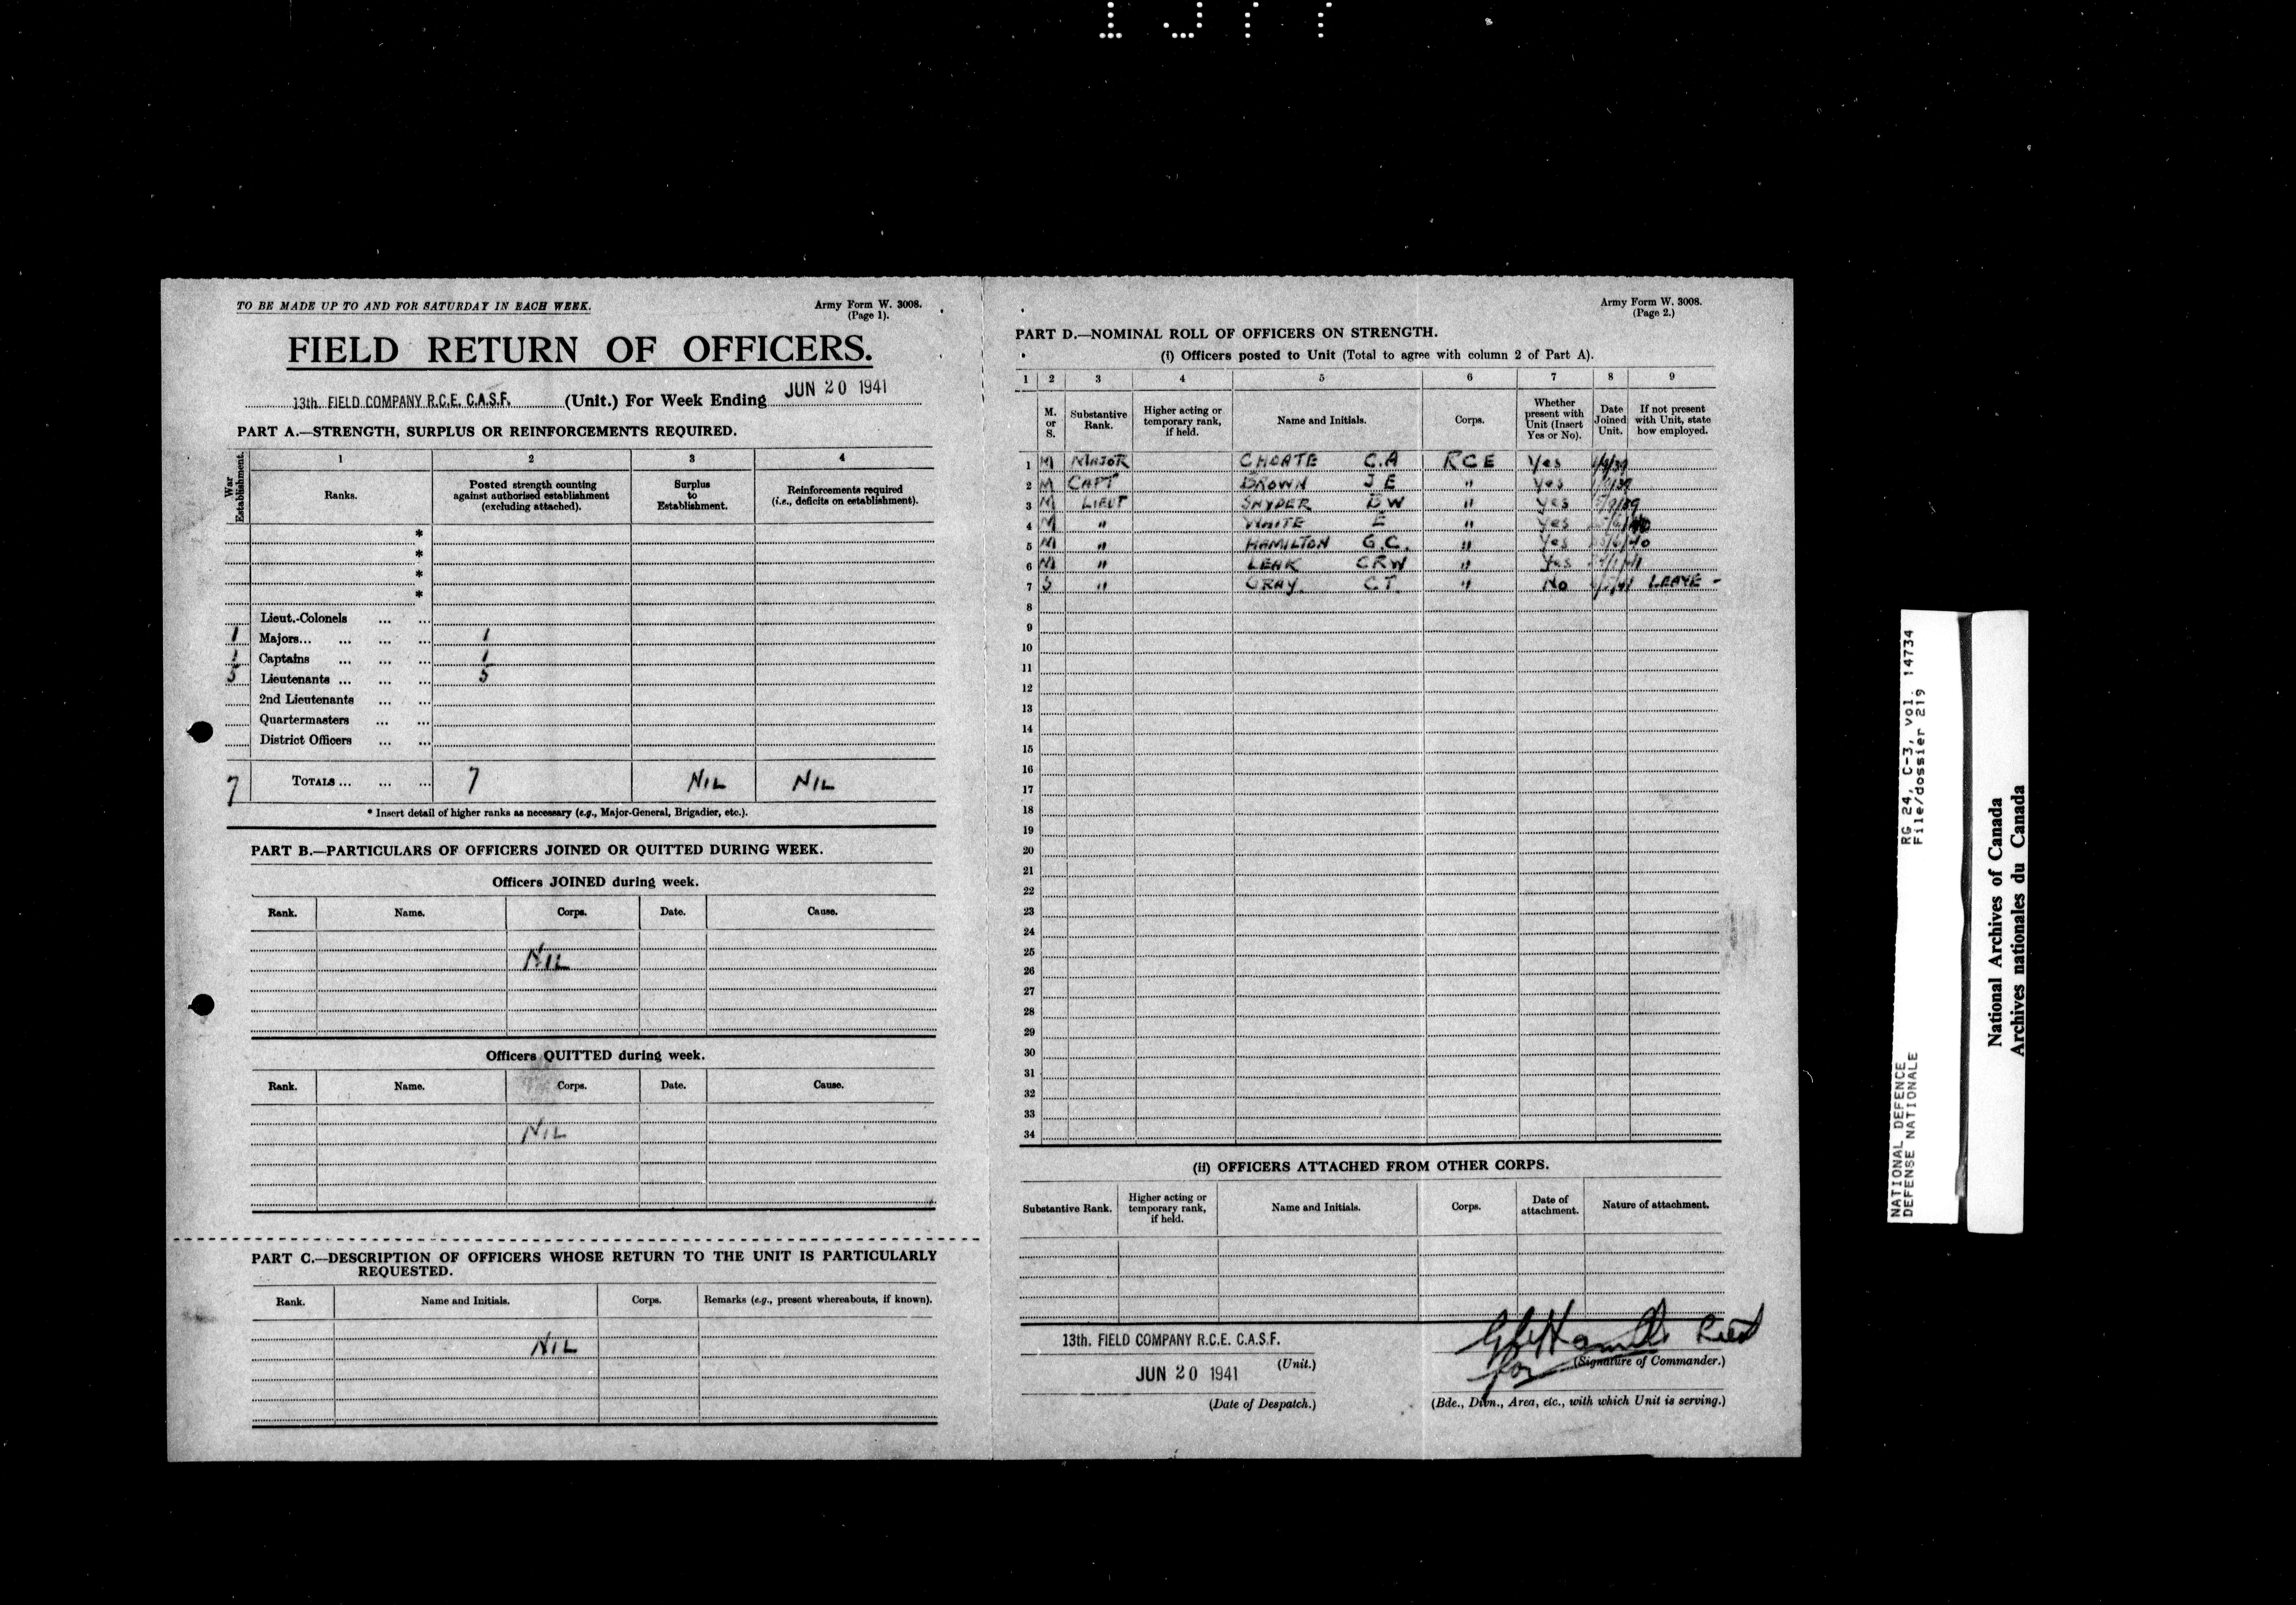 TO BE MADE UP TO AND FOR SATURDAY IN EACH WEEK.
Army Form W. 3008.
(Page 1).
FIELD RETURN OF OFFICERS.
13th. FIELD COMPANY R.C.E. C.A.S.F. (Unit.) For Week Ending JUN 20 1941
PART A.—STRENGTH, SURPLUS OR REINFORCEMENTS REQUIRED.
War Establishment.
1 2 3 4
Ranks. Posted strength counting against authorised establishment (excluding attached). Surplus to Establishment. Reinforcements required (i.e., deficits on establishment).
*
*
*
*
Lieut.-Colonels ... ...
1 Majors... ... ... ... 1
1 Captains ... ... ... 1
5 Lieutenants ... ... ... 5
2nd Lieutenants ... ...
Quartermasters ... ...
District Officers ... ...
7 TOTALS ... ... ... 7 NIL NIL
* Insert detail of higher ranks as necessary (e.g., Major-General, Brigadier, etc.).
PART B.—PARTICULARS OF OFFICERS JOINED OR QUITTED DURING WEEK.
Officers JOINED during week.
Rank. Name. Corps. Date. Cause.
NIL
Officers QUITTED during week.
Rank. Name. Corps. Date. Cause.
NIL
PART C.—DESCRIPTION OF OFFICERS WHOSE RETURN TO THE UNIT IS PARTICULARLY
REQUESTED.
Rank. Name and Initials. Corps. Remarks (e.g., present whereabouts, if known).
NIL
Army Form W. 3008.
(Page 2.)
PART D.—NOMINAL ROLL OF OFFICERS ON STRENGTH.
(i) Officers posted to Unit (Total to agree with column 2 of Part A).
1 2 3 4 5 6 7 8 9
M. or S. Substantive Rank. Higher acting or temporary rank, if held. Name and Initials. Corps. Whether present with Unit (Insert Yes or No). Date Joined Unit. If not present with Unit, state how employed.
1 M MAJOR CHOATE C.A RCE Yes
2 M CAPT BROWN J E " Yes
3 M LIEUT SNYDER B W " Yes
4 M " WHITE E " Yes
5 M " HAMILTON G.C. " Yes
6 M " LEAK CRW " Yes
7 S " GRAY. C T. " No LEAVE -
8
9
10
11
12
13
14
15
16
17
18
19
20
21
22
23
24
25
26
27
28
29
30
31
32
33
34
(ii) OFFICERS ATTACHED FROM OTHER CORPS.
Substantive Rank. Higher acting or temporary rank, if held. Name and Initials. Corps. Date of attachment. Nature of attachment.
13th. FIELD COMPANY R.C.E. C.A.S.F.
(Unit.)
for (Signature of Commander.)
JUN 20 1941
(Date of Despatch.)
(Bde., Divn., Area, etc., with which Unit is serving.)
NATIONAL DEFENCE RG 24, C-3, vol. 14734
DEFENSE NATIONALE File/dossier 219
National Archives of Canada
Archives nationales du Canada